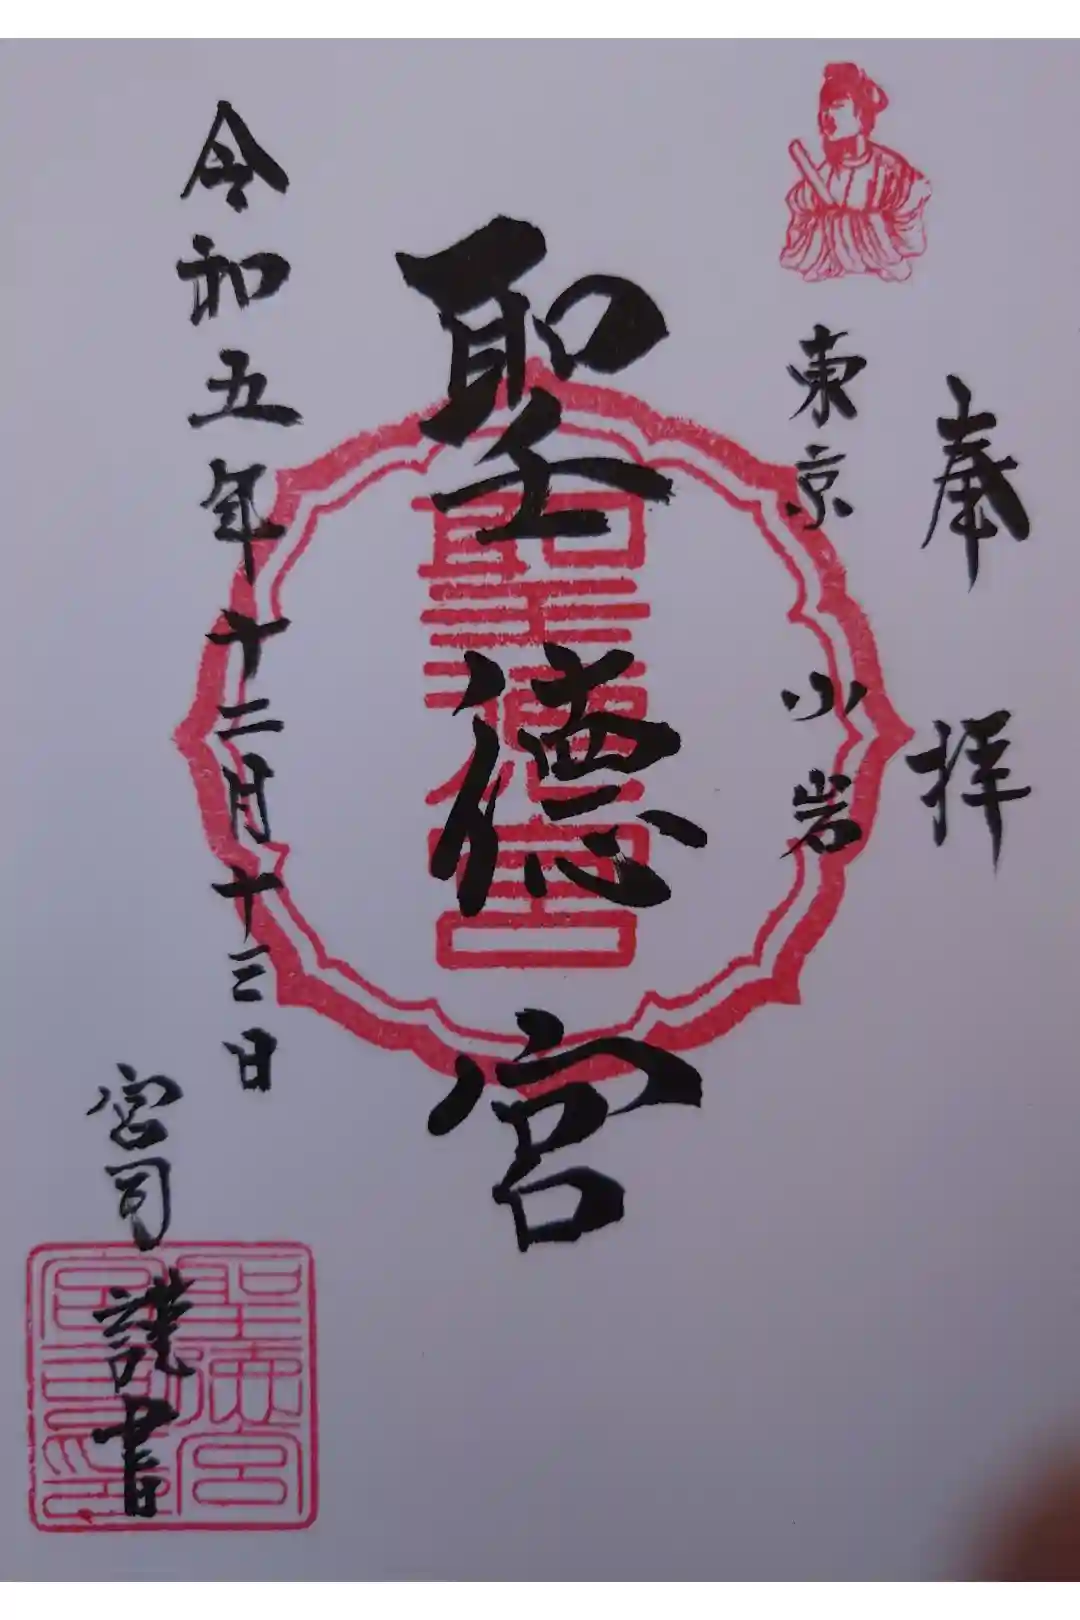 奉拝
東京 小岩
聖徳宮
聖徳宮
令和五年十二月十三日
宮司 謹書
聖徳宮
宮司之印